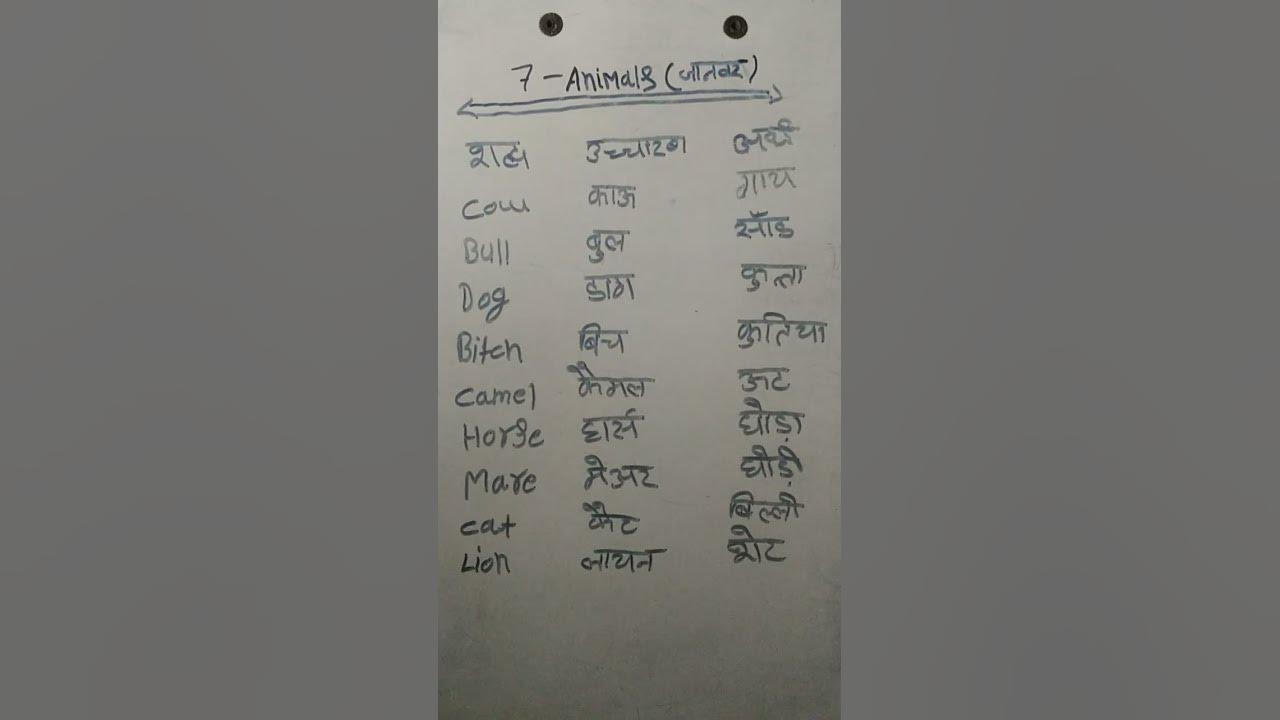 7 - Animals (जानवर)
शब्द उच्चारण अर्थ
Cow काऊ गाय
Bull बुल साँड
Dog डाग कुत्ता
Bitch बिच कुतिया
Camel कैमल ऊट
Horse हार्स घोड़ा
Mare मेअर घोड़ी
Cat कैट बिल्ली
Lion लायन शेर